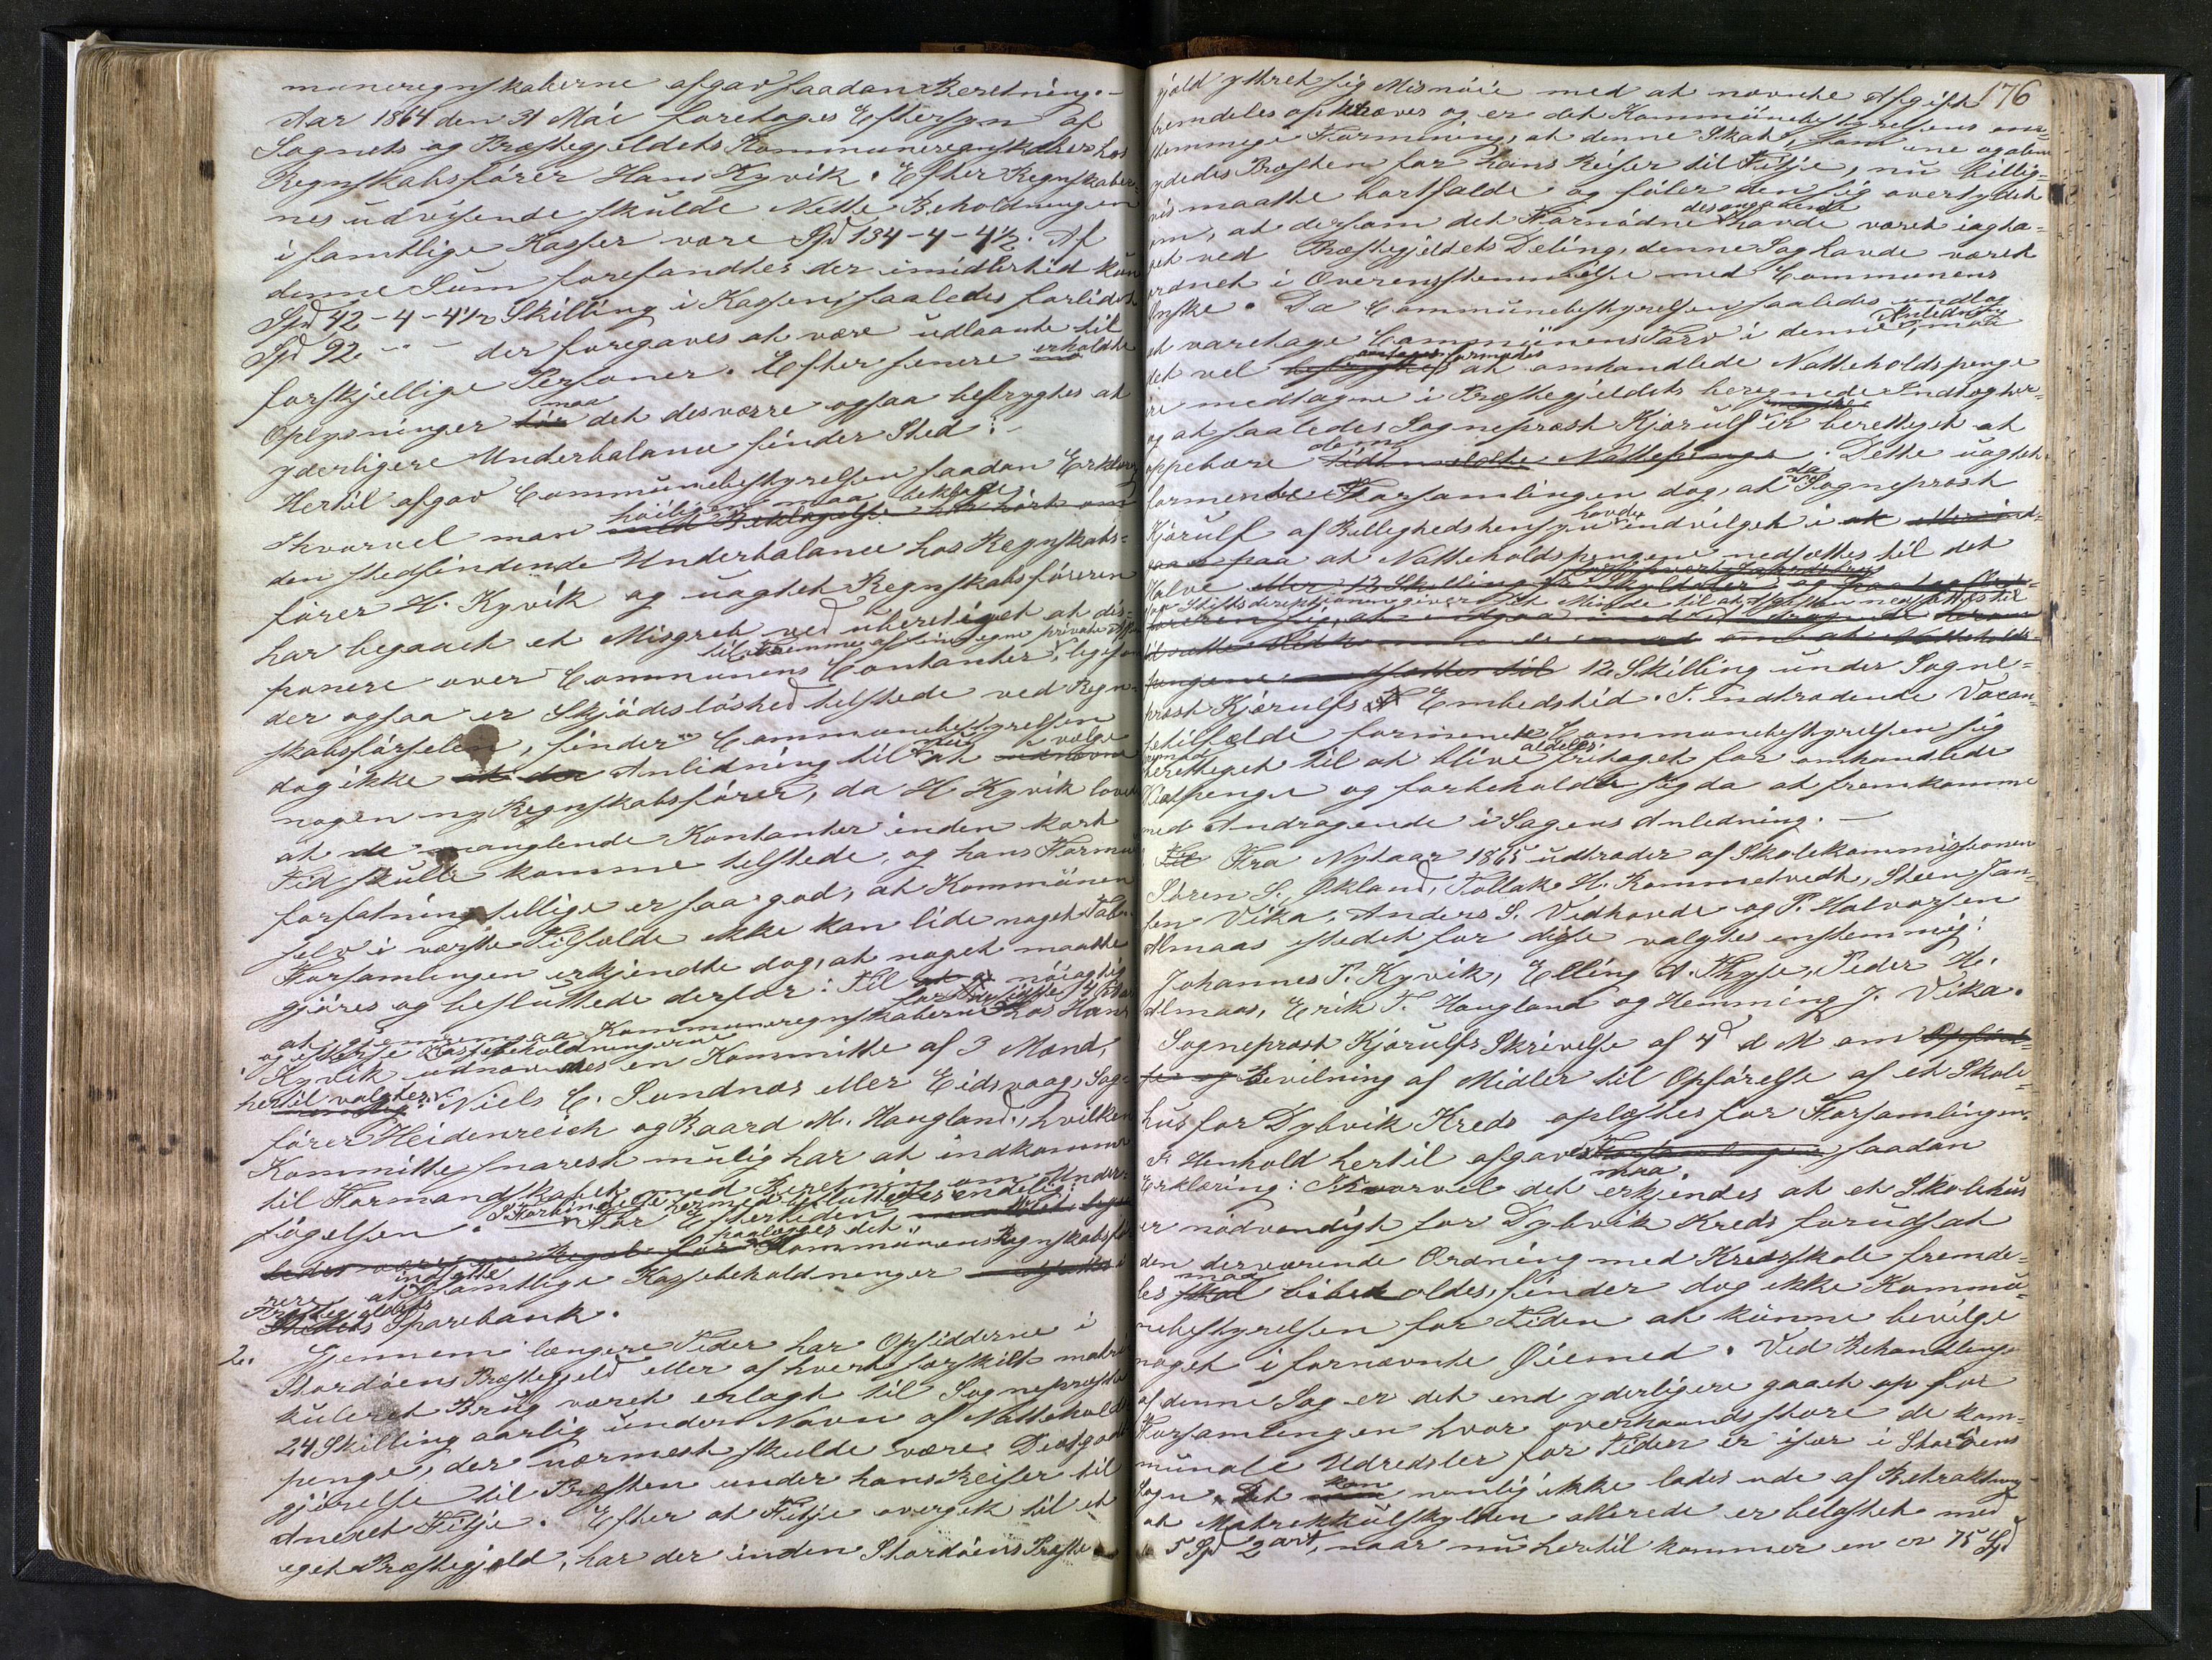 muneregnskaberne afgav saadan Beretning. -
Aar 1864 den 31 Mai foretoges Eftersyn af
Sognets og Præstegjeldets Kommuneregnskaber hos
Regnskabsfører Hans Kyvik. Efter Regnskaber-
nes udvisende skulde Nette Beholdningen
i samtlige Kasser være Spd 134-4-4½. Af
denne Sum forefandtes der imidlertid kun
Spd 42-4-4½ Skilling i Kassen, saaledes forlidet
Spd 92 - - der foregaves at være udlaante til
forskjellige Personer. Efter senere erholdte
Oplysninger maa det desværre ogsaa befrygtes at
yderligere Underbalance finder Sted. -
Hertil afgav Communebestyrelsen saadan Erklæring
Hvorvel man høiligen maa beklage
den stedfindende Underbalance hos Regnskabs-
fører H. Kyvik og uagtet Regnskabsføreren
har begaaet et Misgreb ved uberetiget at dis-
til Fremme af sine egne private
ponere over Communens Contanter, ligesom
der ogsaa er Skjødesløshed tilstede ved Regn-
skabsførselen, finder Communebestyrelsen
dog ikke Anledning til nu at vælge
nogen ny Regnskabsfører, da H Kyvik lovede
at de manglende Kontanter inden kort
Tid skulle komme tilstede, og hans Formu
forfatning sellige er saa god, at Kommunen
selv i værste Tilfælde ikke kan lide noget Tab.
Forsamlingen erkjendte dog, at noget maatte
gjøres og besluttede derfor: Til nøiagtig
at gjennemgaa Kommuneregnskaberne for hos Hans
og eftersee Kassebeholdningerne
Kyvik udnævnes en Kommitte af 3 Mænd,
hertil valgtes: Niels C. Sundnæs eller Eidsvaag, Sag-
fører Heidenreich og Baard M. Haugland, hvilken
Kommitte snarest mulig har at indkomme
til Formandskabet med Beretning om Under-
søgelsen. I Forbindelse hermed besluttedes endelig:
for Eftertiden
paalægges det Kommunens Regnskabsfø
rere at indsætte samtlige Kassebeholdninger i
Præstegjeldets Sparebank.
2. Gjennem længere Tider har Opsidderne i
Stordøens Præstegjeld eller af hvert særskilt matri
kuleret Brug været erlagt til Sognepræsten
24 Skilling aarlig under Navn af Natteholds
penge, der nærmest skulde være Diætgodt
gjørelse til Præsten under hans Reiser til
Annexet Fitje. Efter at Fitje overgik til et
eget Præstegjeld, har der inden Stordøens Præste
176
gjeld yttret sig Misnøie med at nævnte Afgift
fremdeles opkræves og er det Kommunebestyrelsens een-
stemmige Formening, at denne Skat, som ene og alene
ydedes Præsten for hans Reiser til Fitje, nu billig-
vis maatte bortfalde og føler den sig overtydet
om, at dersom det Fornødne desangaaende havde været iagtta-
get ved Præstegjeldets Deling, denne Sag havde været
ordnet i Overensstemmelse med Communens
Ønske. Da Communebestyrelsen saaledes undlog
at varetage Communens Tarv i denne Anledning, maa
det vel formodes at omhandlede Natteholdspenge
ere medtagne i Præstegjeldets beregnede Indtægter
og at saaledes Sognepræst Kjørulf er berettiget at
oppebære dem. Dette uagtet
formente Forsamlingen dog, at da Sognepræst
Kjørulf af Billighedshensyn havde indvilget i
paa at Natteholdspengene nedsættes til det
Halve
og Stiftsdirektionen giver sit Minde til at Afgiften nedsættes til
12 Skilling under Sogne-
præst Kjørulfs Embedstid. I indtrædende Vacan-
cetilfælde formente Communebestyrelsen sig
berettiget til at blive aldeles fritaget for omhandlede
Diætpenge og forbeholdte sig da at fremkomme
med Andragende i Sagens Anledning. -
Fra Nytaar 1865 udtræder af Skolekommissionen
Søren S. Økland, Tollak H. Rommetvedt, Steen Jan-
sen Vika, Anders S. Vedhovde og P. Halvorsen
Almaas istedet for disse valgtes enstemmig:
Johannes P. Kyvik, Elling A. Thyse, Peder H.
Almaas, Erik T. Haugland og Hemming J. Vika.
Sognepræst Kjørulfs Skrivelse af 4d d M om
Bevilning af Midler til Opførelse af et Skole-
hus for Dybvik Kreds oplæstes for Forsamlingen.
I Henhold hertil afgaves saadan
Erklæring: Hvorvel det maa erkjendes at et Skolehus
er nødvendigt for Dybvik Kreds forudsat
den derværende Ordning med Kredsskole fremde-
les maa bibeholdes, finder dog ikke Kommu-
nebestyrelsen for Tiden at kunne bevilge
noget i fornævnte Øiemed. Ved Behandling
af denne Sag er det end yderligere gaaet op for
Forsamlingen hvor overhaands store de kom-
munale Udredsler for Tiden er især i Stordøens
Sogn. Det kan nemlig ikke lades ude af Betraktning
at Matrikkulskylden allerede er belastet med
5 Spd 2 ort, naar nu hertil kommer en cr 75 Spd